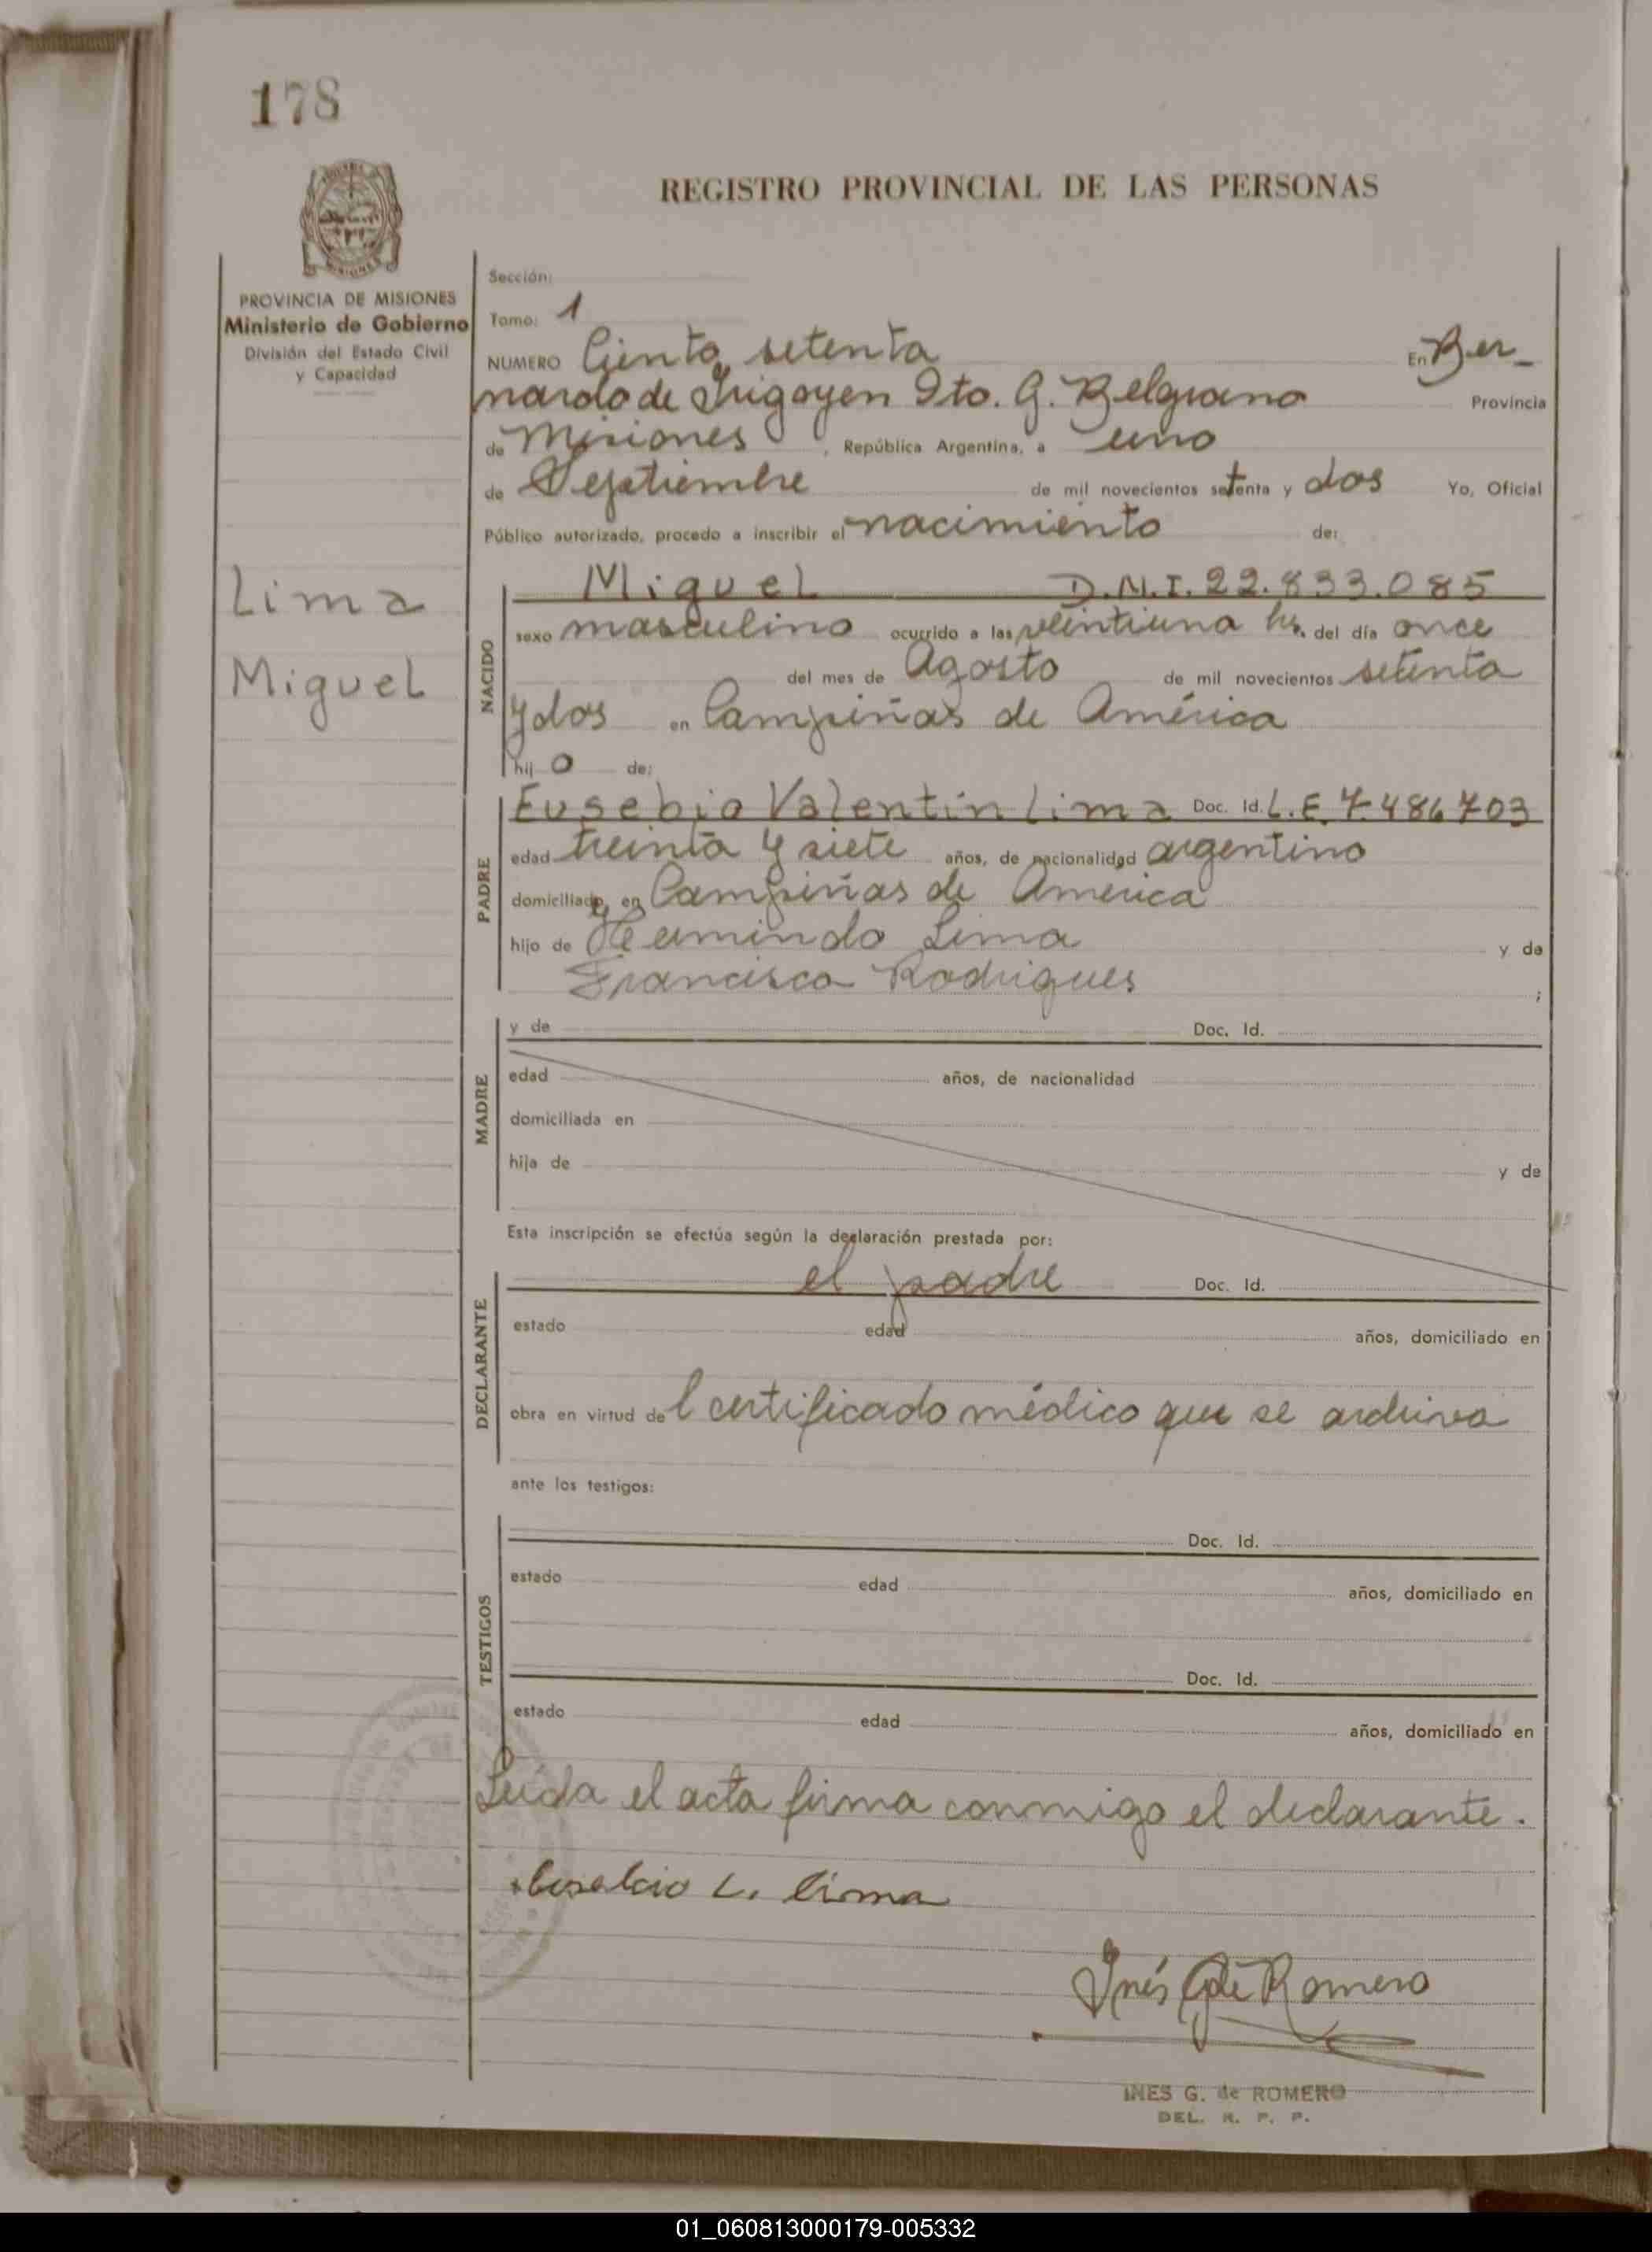 178
REGISTRO PROVINCIAL DE LAS PERSONAS
MISIONES
PROVINCIA DE MISIONES
Ministerio de Gobierno
División del Estado Civil
y Capacidad
Lima
Miguel
Sección:
Tomo: 1
NUMERO Ciento setenta En Ber_
nardo de Irigoyen Dto. G. Belgrano Provincia
de Misiones, República Argentina, a uno
de Septiembre de mil novecientos setenta y dos Yo, Oficial
Público autorizado, procedo a inscribir el nacimiento de:
NACIDO
Miguel D.N.I. 22.833.085
sexo masculino ocurrido a las veintiuna hs. del día once
del mes de Agosto de mil novecientos setenta
y dos en Campiñas de América
hij o de:
PADRE
Eusebio Valentín Lima Doc. Id. L.E. 7.486703
edad treinta y siete años, de nacionalidad argentino
domiciliado en Campiñas de America
hijo de Lima y de
Francisca Rodrigues ;
MADRE
y de Doc. Id.
edad años, de nacionalidad
domiciliada en
hija de y de
Esta inscripción se efectúa según la declaración prestada por:
DECLARANTE
el padre Doc. Id.
estado edad años, domiciliado en
obra en virtud del certificado médico que se archiva
ante los testigos:
TESTIGOS
Doc. Id.
estado edad años, domiciliado en
Doc. Id.
estado edad años, domiciliado en
Leída el acta firma conmigo el declarante.
Lima
Inés G de Romero
INES G. de ROMERO
DEL. R. P. P.
01_060813000179-005332